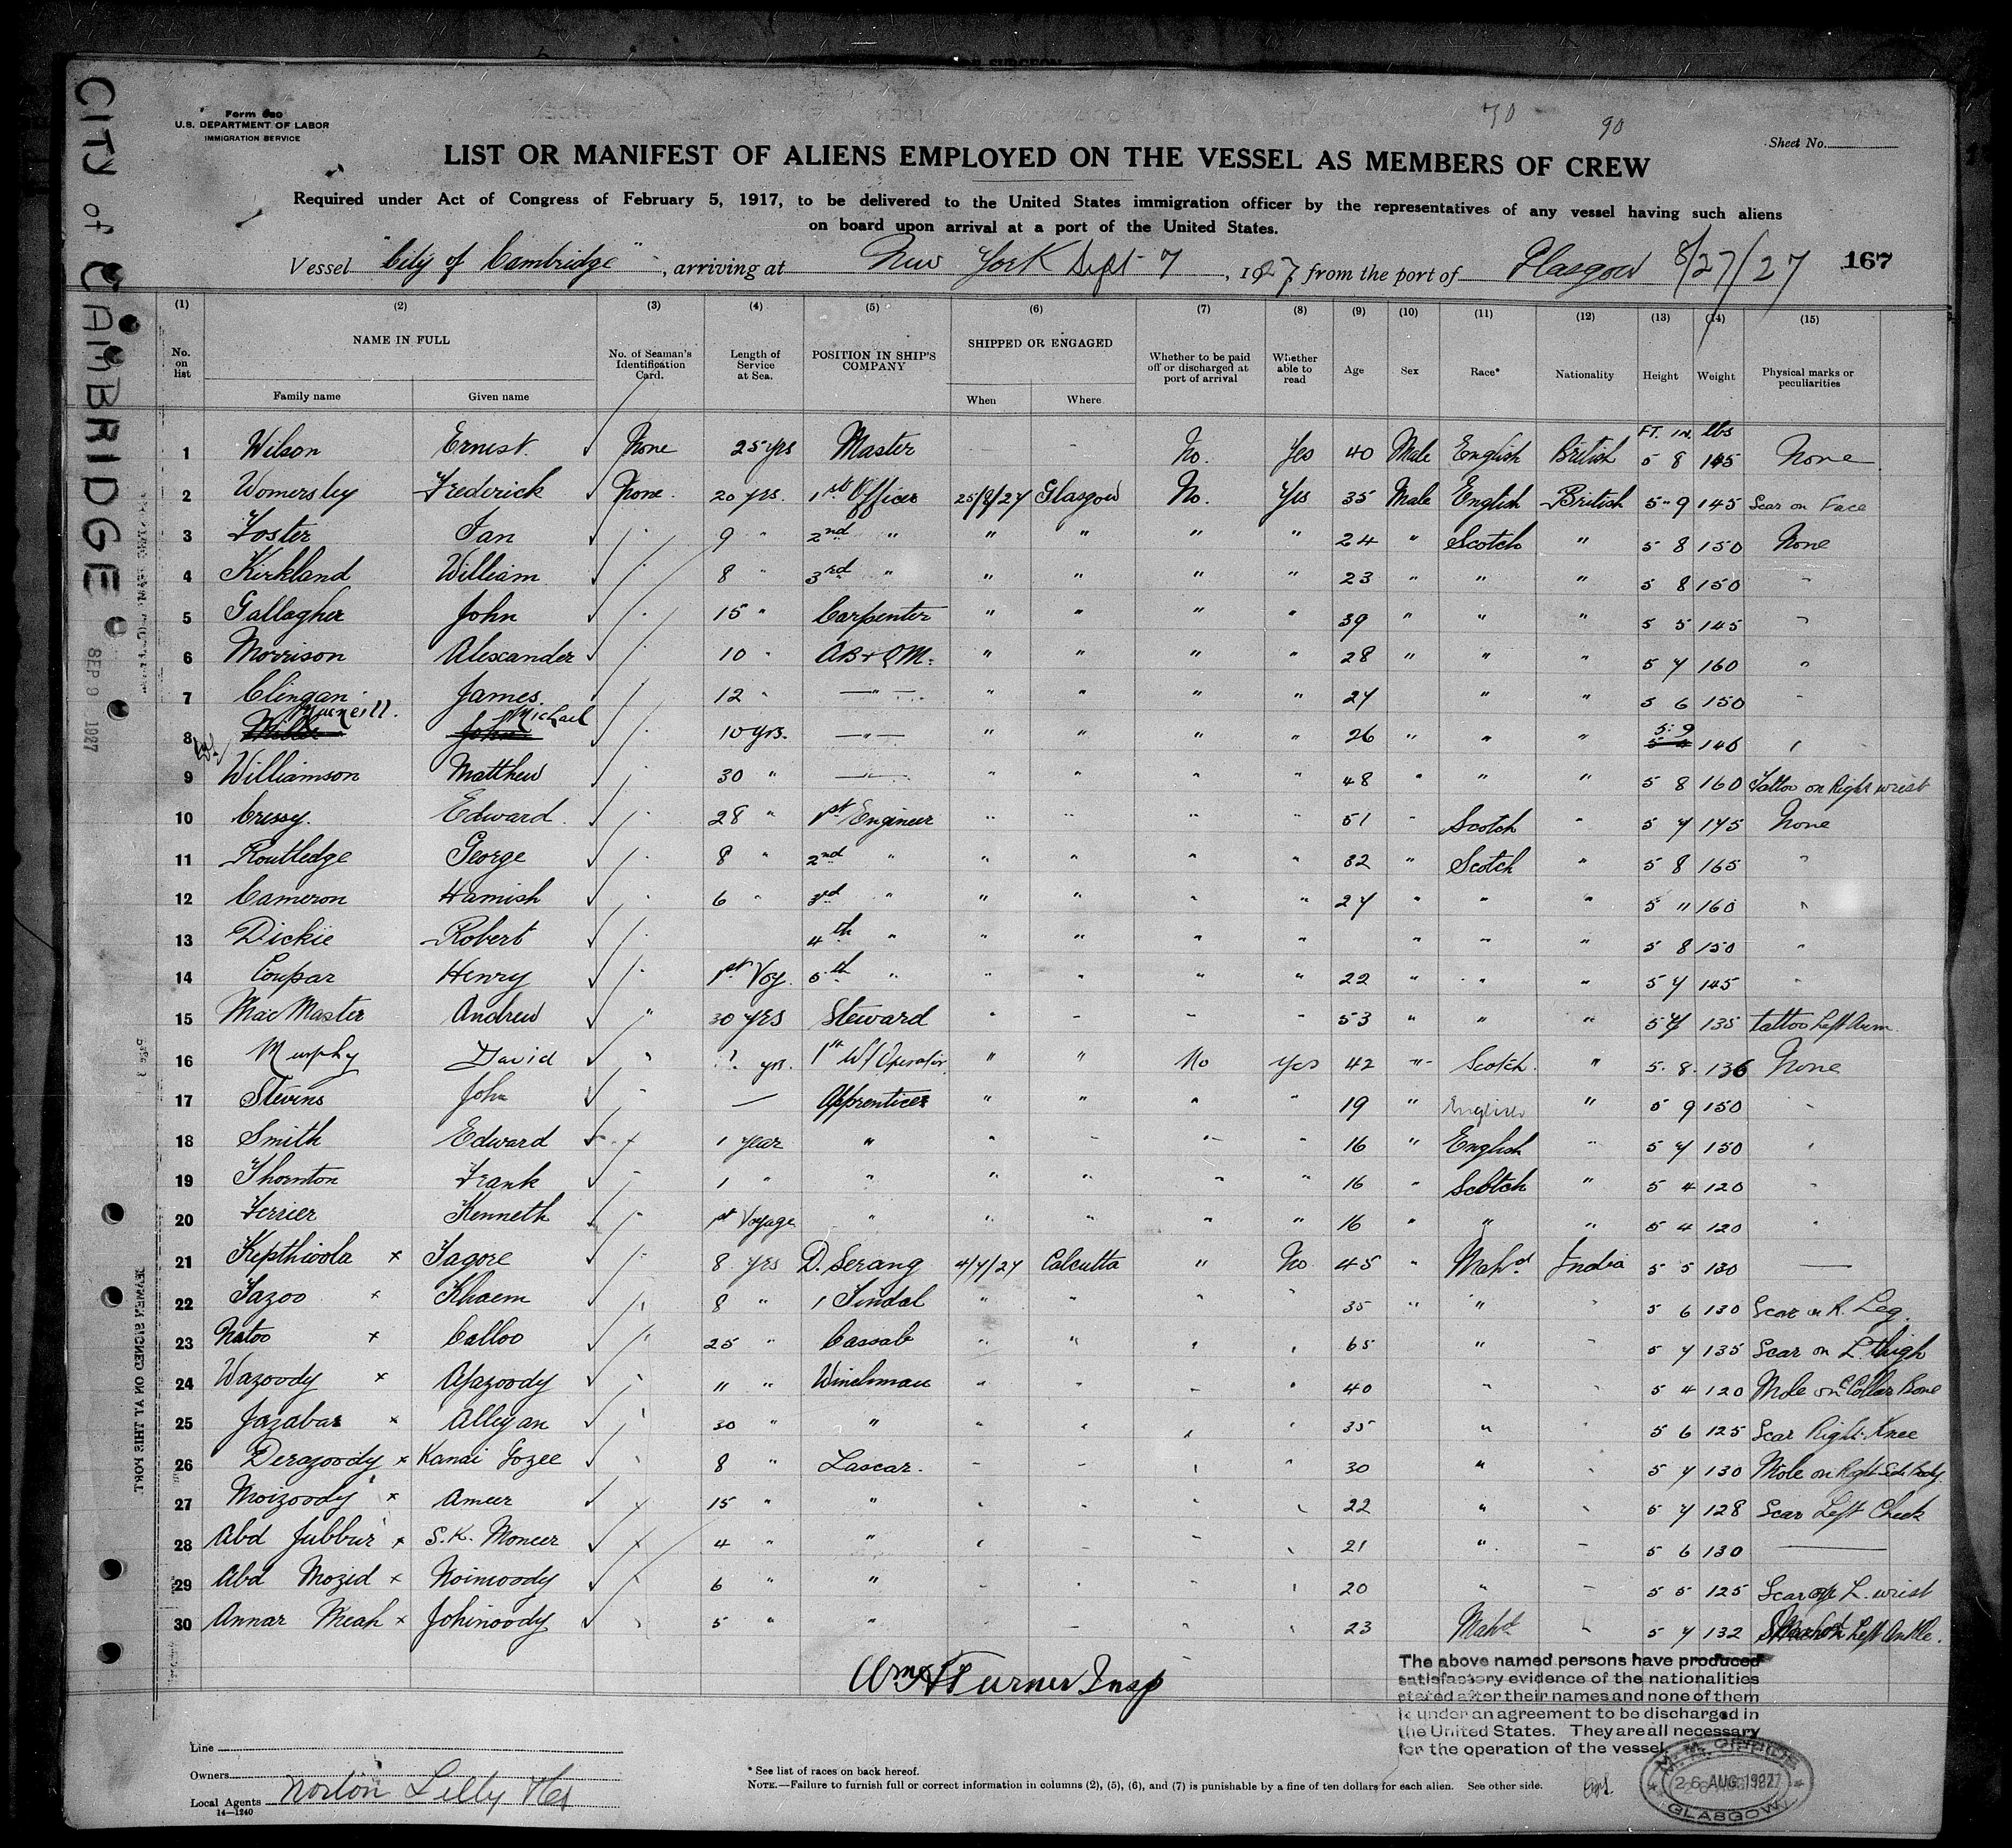 CITY of CAMBRIDGE
SEP 9 1927
70
90
Form 680
U.S. DEPARTMENT OF LABOR
IMMIGRATION SERVICE
Sheet No.
LIST OR MANIFEST OF ALIENS EMPLOYED ON THE VESSEL AS MEMBERS OF CREW
Required under Act of Congress of February 5, 1917, to be delivered to the United States immigration officer by the representatives of any vessel having such aliens
on board upon arrival at a port of the United States.
Vessel "City of Cambridge", arriving at New York Sept 7, 1927, from the port of Glasgow 8/27/27 167
(1) (2) (3) (4) (5) (6) (7) (8) (9) (10) (11) (12) (13) (14) (15)
No. on list NAME IN FULL Family name Given name No. of Seaman's Identification Card. Length of Service at Sea. POSITION IN SHIP'S COMPANY SHIPPED OR ENGAGED When Where Whether to be paid off or discharged at port of arrival Whether able to read Age Sex Race* Nationality Height Weight Physical marks or peculiarities
FT. IN. lbs
1 Wilson Ernest. None 25 yrs Master — No. Yes 40 Male English British 5 8 145 None
2 Womersley Frederick None. 20 yrs. 1st Officer 25/8/27 Glasgow No. Yes 35 Male English British 5 9 145 Scar on Face
3 Foster Ian 9 " 2nd " " " " " 24 " Scotch " 5 8 150 None
4 Kirkland William 8 " 3rd " " " " " 23 " " " 5 8 150 "
5 Gallagher John 15 " Carpenter " " " " 39 " " " 5 5 145 "
6 Morrison Alexander 10 " AB & QM. " " " " 28 " " " 5 7 160 "
7 Clingan James. 12 " —"— " " " " 27 " " 5 6 150 "
MacNeill. Michael
8 John 10 yrs. —"— " " " " 26 " " " 5.9 146 "
9 Williamson Matthew 30 " —"— " " " " 48 " " " 5 8 160 Tattoo on Right wrist
10 Cressy. Edward 28 " 1st Engineer " " " " 51 " Scotch " 5 7 145 None
11 Routledge George 8 " 2nd " " " " " 32 " Scotch " 5 8 165 "
12 Cameron Hamish 6 " 3rd " " " " " 27 " " " 5 " 160 "
13 Dickie Robert 4th " " " " " " " " 5 8 150 "
14 Coupar Henry 1st Voy. 5th " " " " " 22 " " " 5 7 145 "
15 MacMaster Andrew " 30 yrs Steward " " " " 53 " " " 5 7 135 tattoo Left Arm.
16 Murphy David " yrs. 1st W/Operator " " No Yes 42 " Scotch " 5. 8. 136 None
17 Stevens John — Apprentices " " " " 19 " English " 5 9 150 "
18 Smith Edward 1 year " " " " " 16 " English " 5 7 150 "
19 Thornton Frank 1 " " " " " " 16 " Scotch " 5 4 120 "
20 Ferrier Kenneth 1st Voyage " " " " " 16 " " " 5 4 120 "
21 Kepthiwola x Tagore 8 yrs D. Serang 4/7/27 Calcutta " No 45 " Mahd. India 5 5 130 —
22 Fazoo x Khaem 8 " 1 Tindal " " " " 35 " " " 5 6 130 Scar on R. Leg.
23 Natoo x Calloo 25 " Cassab " " " " 65 " " 5 7 135 Scar on L. thigh
24 Wazoody x Afazoody " " Winchman " " " " 40 " " 5 4 120 Mole on Collar Bone
25 Jazabar x Alleyan 30 " " " " " " 35 " 5 6 125 Scar Right Knee
26 Derazoody x Kanai Gozee 8 " Lascar. " " " " 30 " " 5 7 130 Mole on Right Side Body
27 Moizoody x Ameer 15 " " " " " " 22 " " 5 7 128 Scar Left Cheek
28 Abd Jubbur x S.K. Moneer 4 " " " " " " 21 " " 5 6 130 —
29 Abd Mozid x Noimoody 6 " " " " " " 20 " " 5 5 125 Scar L. wrist
30 Annar Meah x Johinoody 5 " " " " " " 23 Mahd. " 5 7 132 Left Ankle.
Wm H Turner Insp
The above named persons have produced
satisfactory evidence of the nationalities
stated after their names and none of them
is under an agreement to be discharged in
the United States. They are all necessary
for the operation of the vessel
Line
Owners
Local Agents Norton Lilly & Co
14—1240
* See list of races on back hereof.
NOTE.—Failure to furnish full or correct information in columns (2), (5), (6), and (7) is punishable by a fine of ten dollars for each alien. See other side.
M. M. OFFICE
26 AUG 1927
GLASGOW